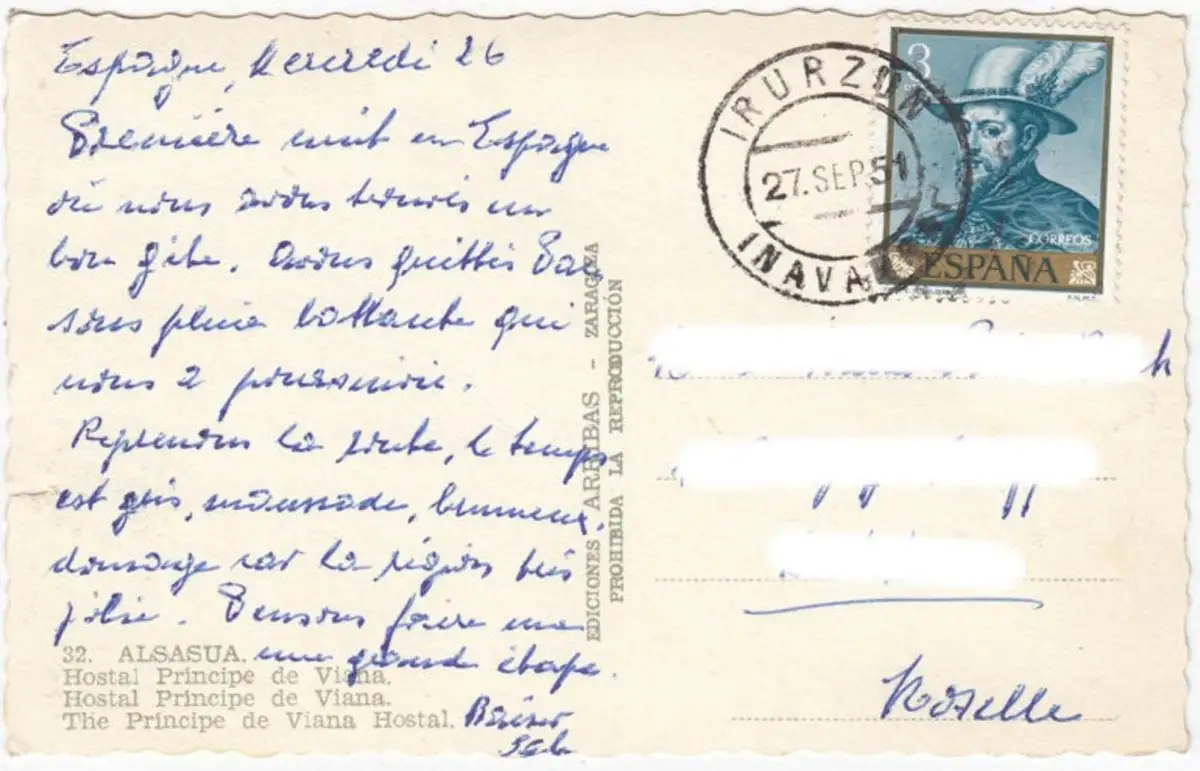 Espagne, Mercredi 26
Première nuit en Espagne
où nous avons trouvés un
bon gîte. Avons quittés
sous pluie battante qui
nous a poursuivie.
Reprenons la route, le temps
est gris, maussade, brumeux,
dommage car la région très
jolie. Pensons faire
une grande étape.
Baiser
32. ALSASUA.
Hostal Principe de Viana.
Hostal Principe de Viana.
The Principe de Viana Hostal.
EDICIONES ARRIBAS - ZARAGOZA
PROHIBIDA LA REPRODUCCIÓN
IRURZUN
27.SEP.51
3
CORREOS
ESPAÑA
Moselle